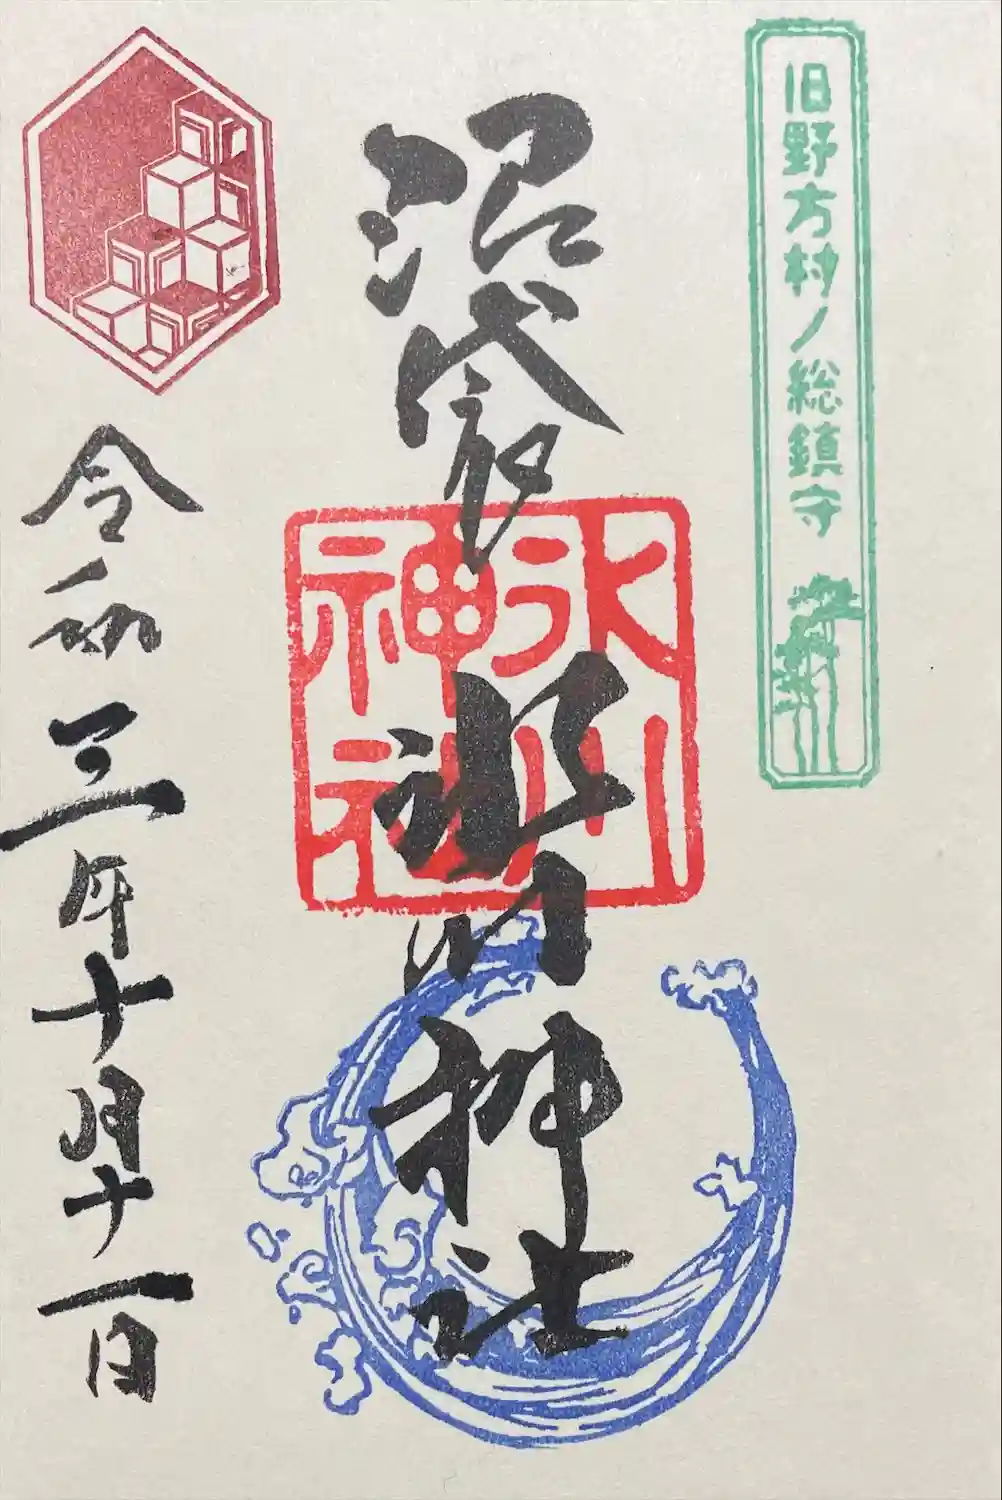 旧野方村ノ総鎮守
沼袋氷川神社
氷川
神社
令和三年十月十一日